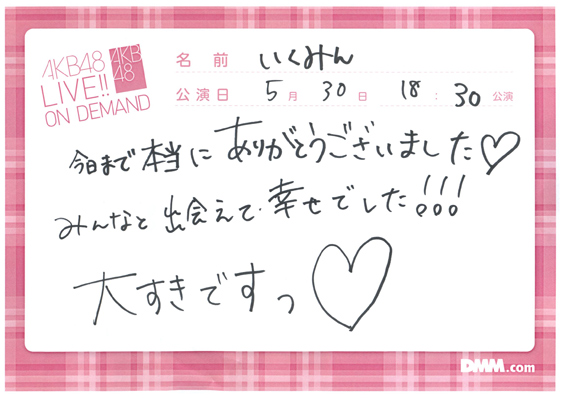 AKB48
LIVE!!
ON DEMAND
AKB
48
名前 いくみん
公演日 5月30日 18:30公演
今日まで本当にありがとうございました♡
みんなと出会えて幸せでした!!!
大すきですっ♡
DMM.com